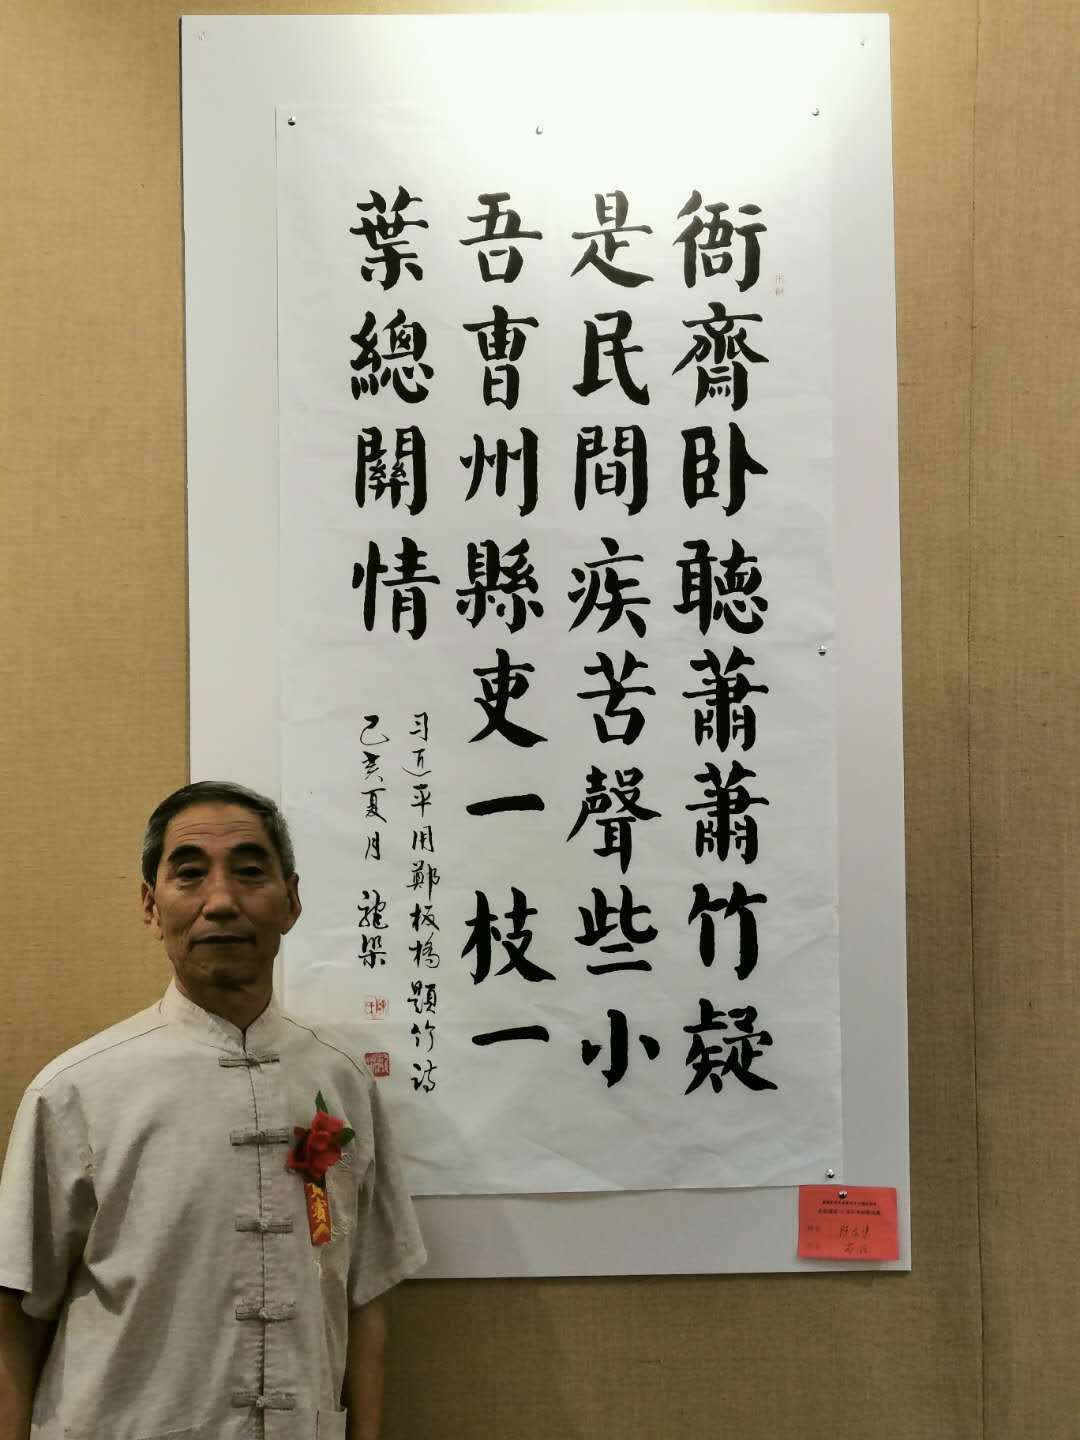 衙齋卧聽蕭蕭竹疑
是民間疾苦聲些小
吾曹州縣吏一枝一
葉總關情
习近平用鄭板橋題竹詩
己亥夏月 龍渠
賓